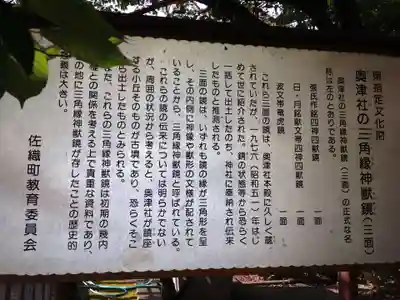 県指定文化財
奥津社の三角縁神獣鏡(三面)
奥津社の三角縁神獣鏡(三面)の正式な名
称は左のとおりである。
張氏作銘四神四獣鏡 一面
日・月銘獣文帯四神四獣鏡 一面
波文帯竜虎鏡 一面
これら三面の鏡は、奥津社本殿に久しく蔵
されていたが、一九七六(昭和五一)年はじ
めて世に紹介された。鏡の状態等から恐らく
一括して出土したのち、神社に奉納され伝来
したものと推測される。
三面の鏡は、いずれも鏡の縁が三角形を呈
し、その内側に神像や獣形の文様が配されて
いることから、三角縁神獣鏡と呼ばれている。
これらの鏡の伝来については明らかでない
が、周囲の状況から考えると、奥津社が鎮座
する小丘そのものが古墳であり、恐らくそこ
から出土したものとみられる。
また、これらの三角縁神獣鏡は初期の畿内
との関係を考える上で貴重な資料であり、
の地に三角縁神獣鏡が存したことの歴史的
義は大きい。
佐織町教育委員会